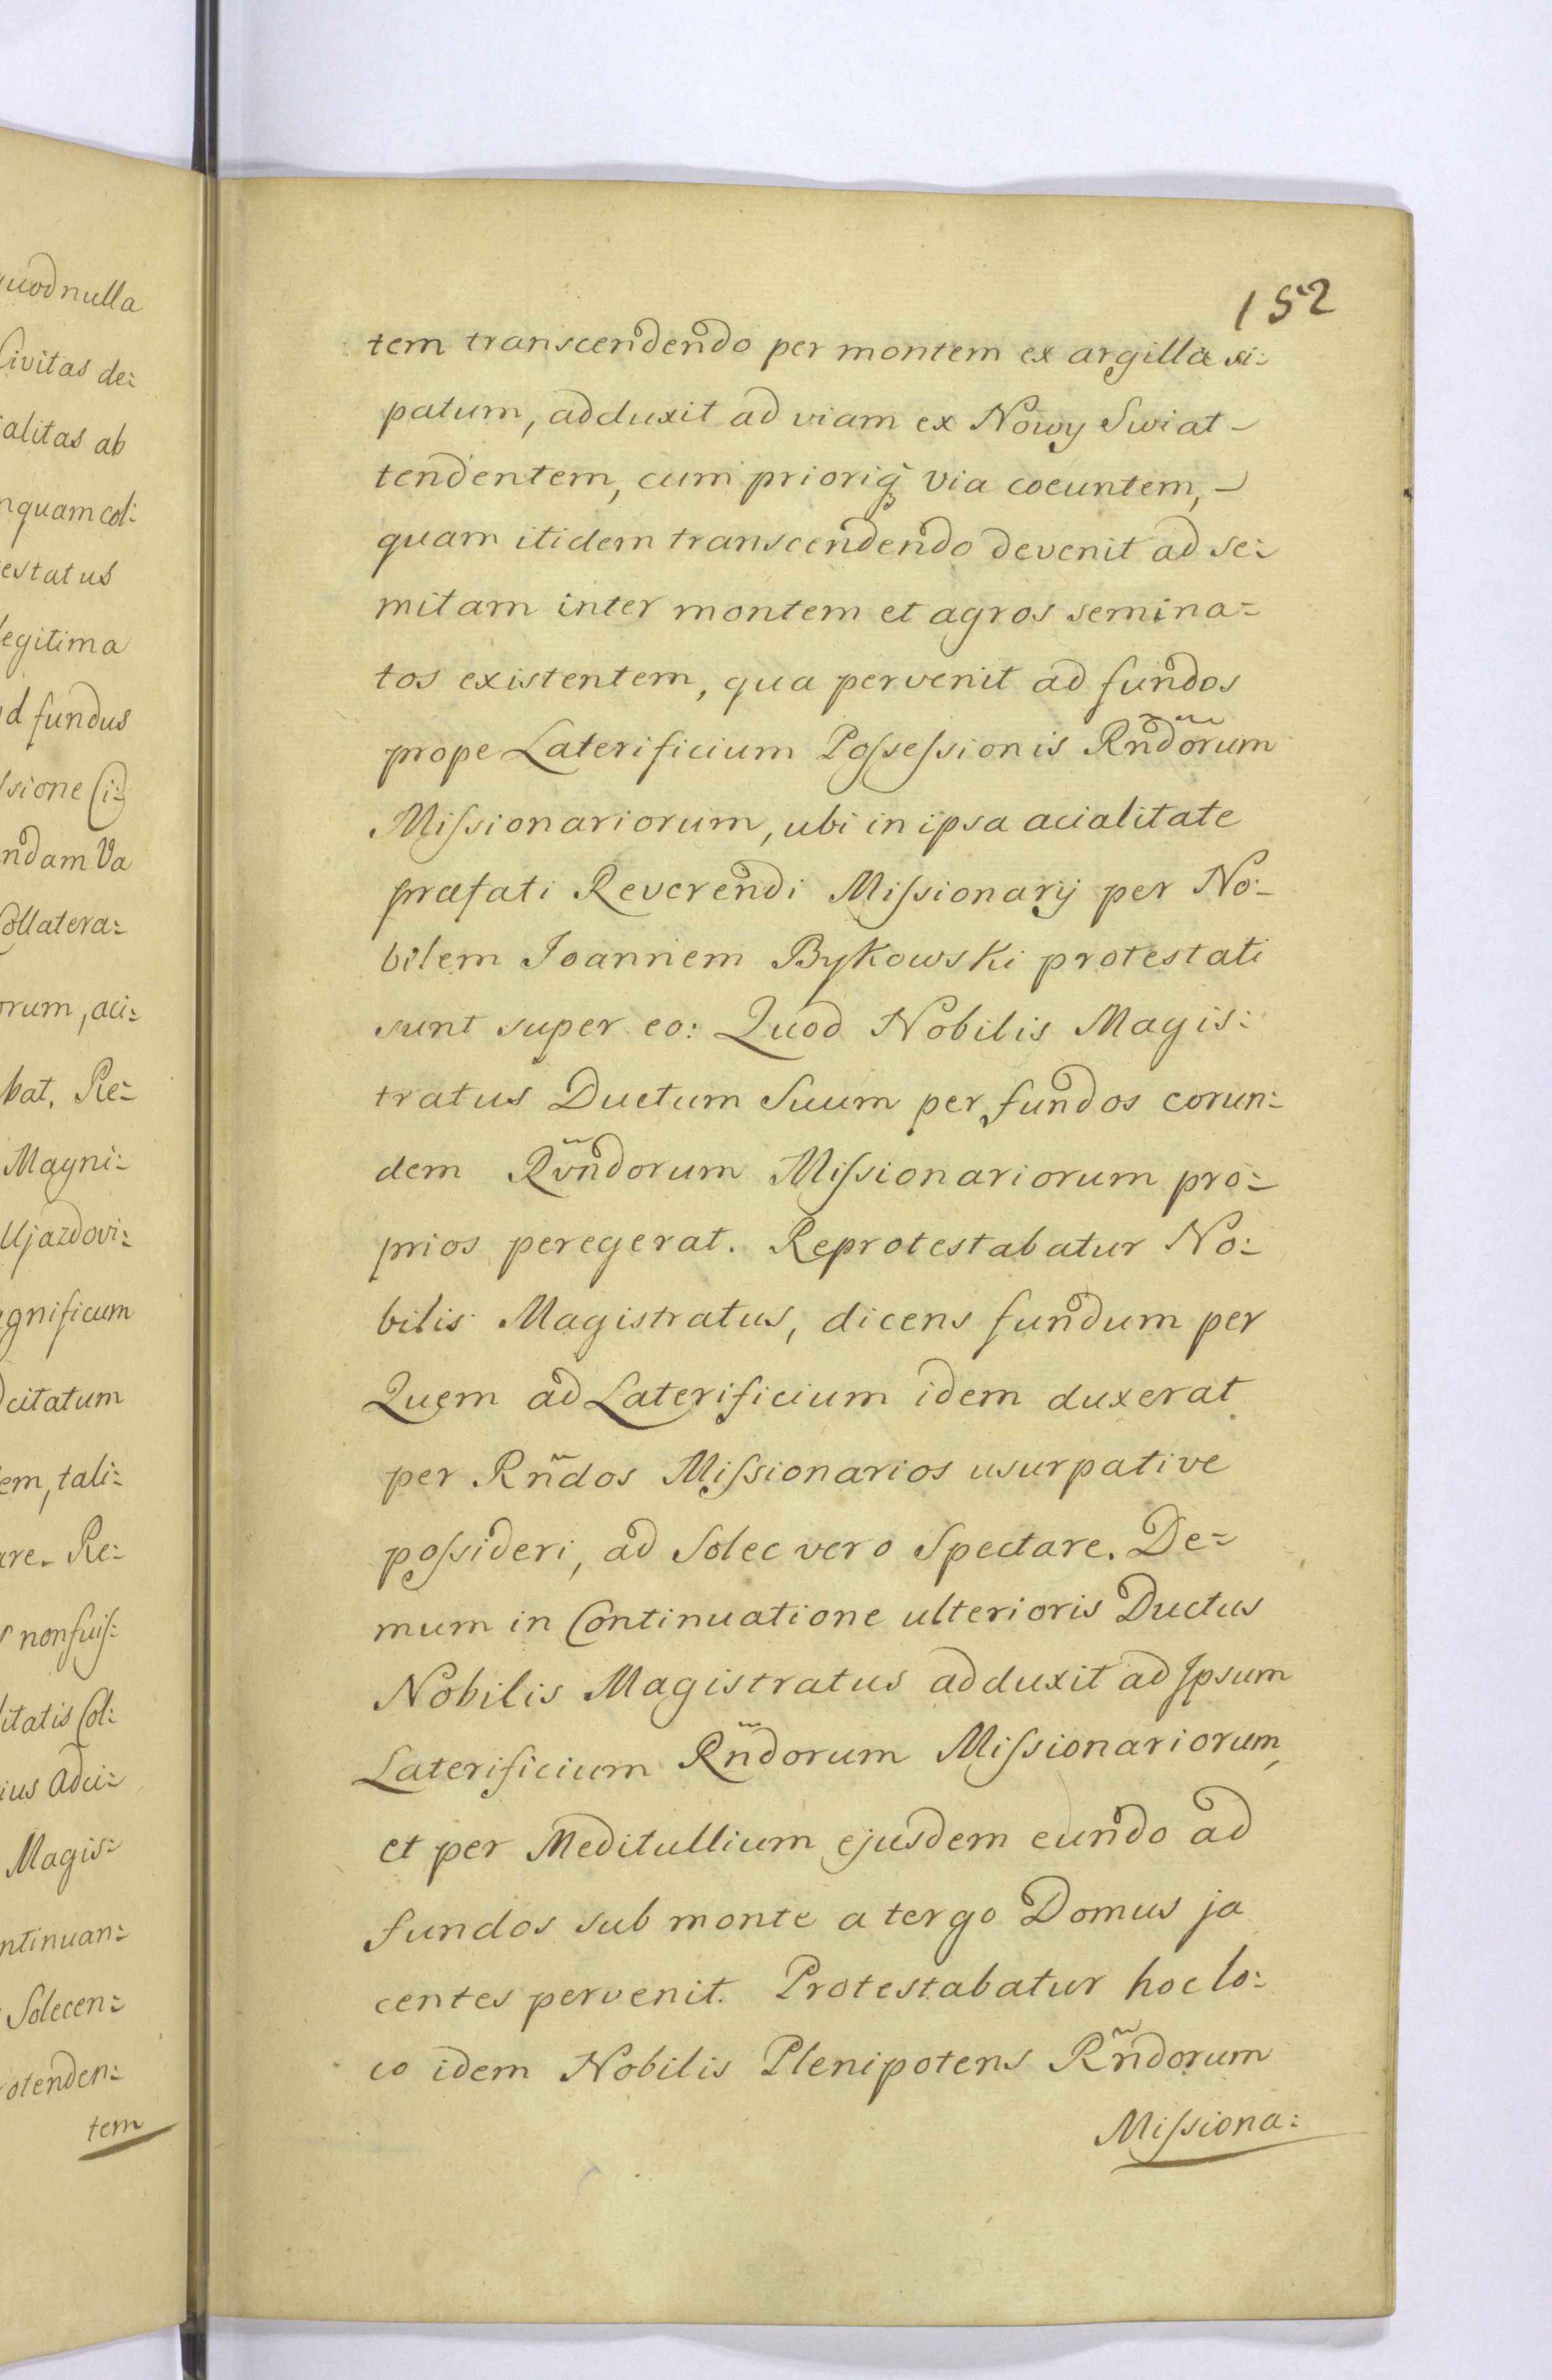 uod nulla
Civitas de:
ialitas ab
nquam col:
estatus
legitima
d fundus
ssione Ci:
ndam Va
Collatera:
orum, aci:
bat, Re:
Magni:
Ujazdovi:
gnificum
citatum
em, tali:
are. Re:
nonfuis:
litatis Col:
ius Adci:
Magis:
ntinuan:
Solecen:
otenden:
tem
152
tem transcendendo per montem ex argilla si:
patum, adduxit ad viam ex Nowy Swiat -
tendentem, cum prioriq̃ via coeuntem, -
quam itidem transcendendo devenit ad se:
mitam inter montem et agros semina=
tos existentem, qua pervenit ad fundos
prope Laterificium Poſseſsionis Rñdorum
Miſsionariorum, ubi in ipsa acialitate
præfati Reverendi Miſsionarij per No:
bilem Joannem Bykowski protestati
sunt super eo: Quod Nobilis Magis:
tratus Ductum Suum per fundos eorun:
dem Rvñdorum Miſsionariorum pro:
prios peregerat. Reprotestabatur No:
bilis Magistratus, dicens fundum per
Quem ad Laterificium idem duxerat
per Rñdos Miſsionarios usurpative
poſsideri, ad Solec vero Spectare. De=
mum in Continuatione ulterioris Ductus
Nobilis Magistratus adduxit ad Ipsum
Laterificium Rñdorum Miſsionariorum,
et per Meditullium ejusdem eundo ad
fundos sub monte a tergo Domus ja
centes pervenit. Protestabatur hoc lo:
co idem Nobilis Plenipotens Rñdorum
Miſsiona: